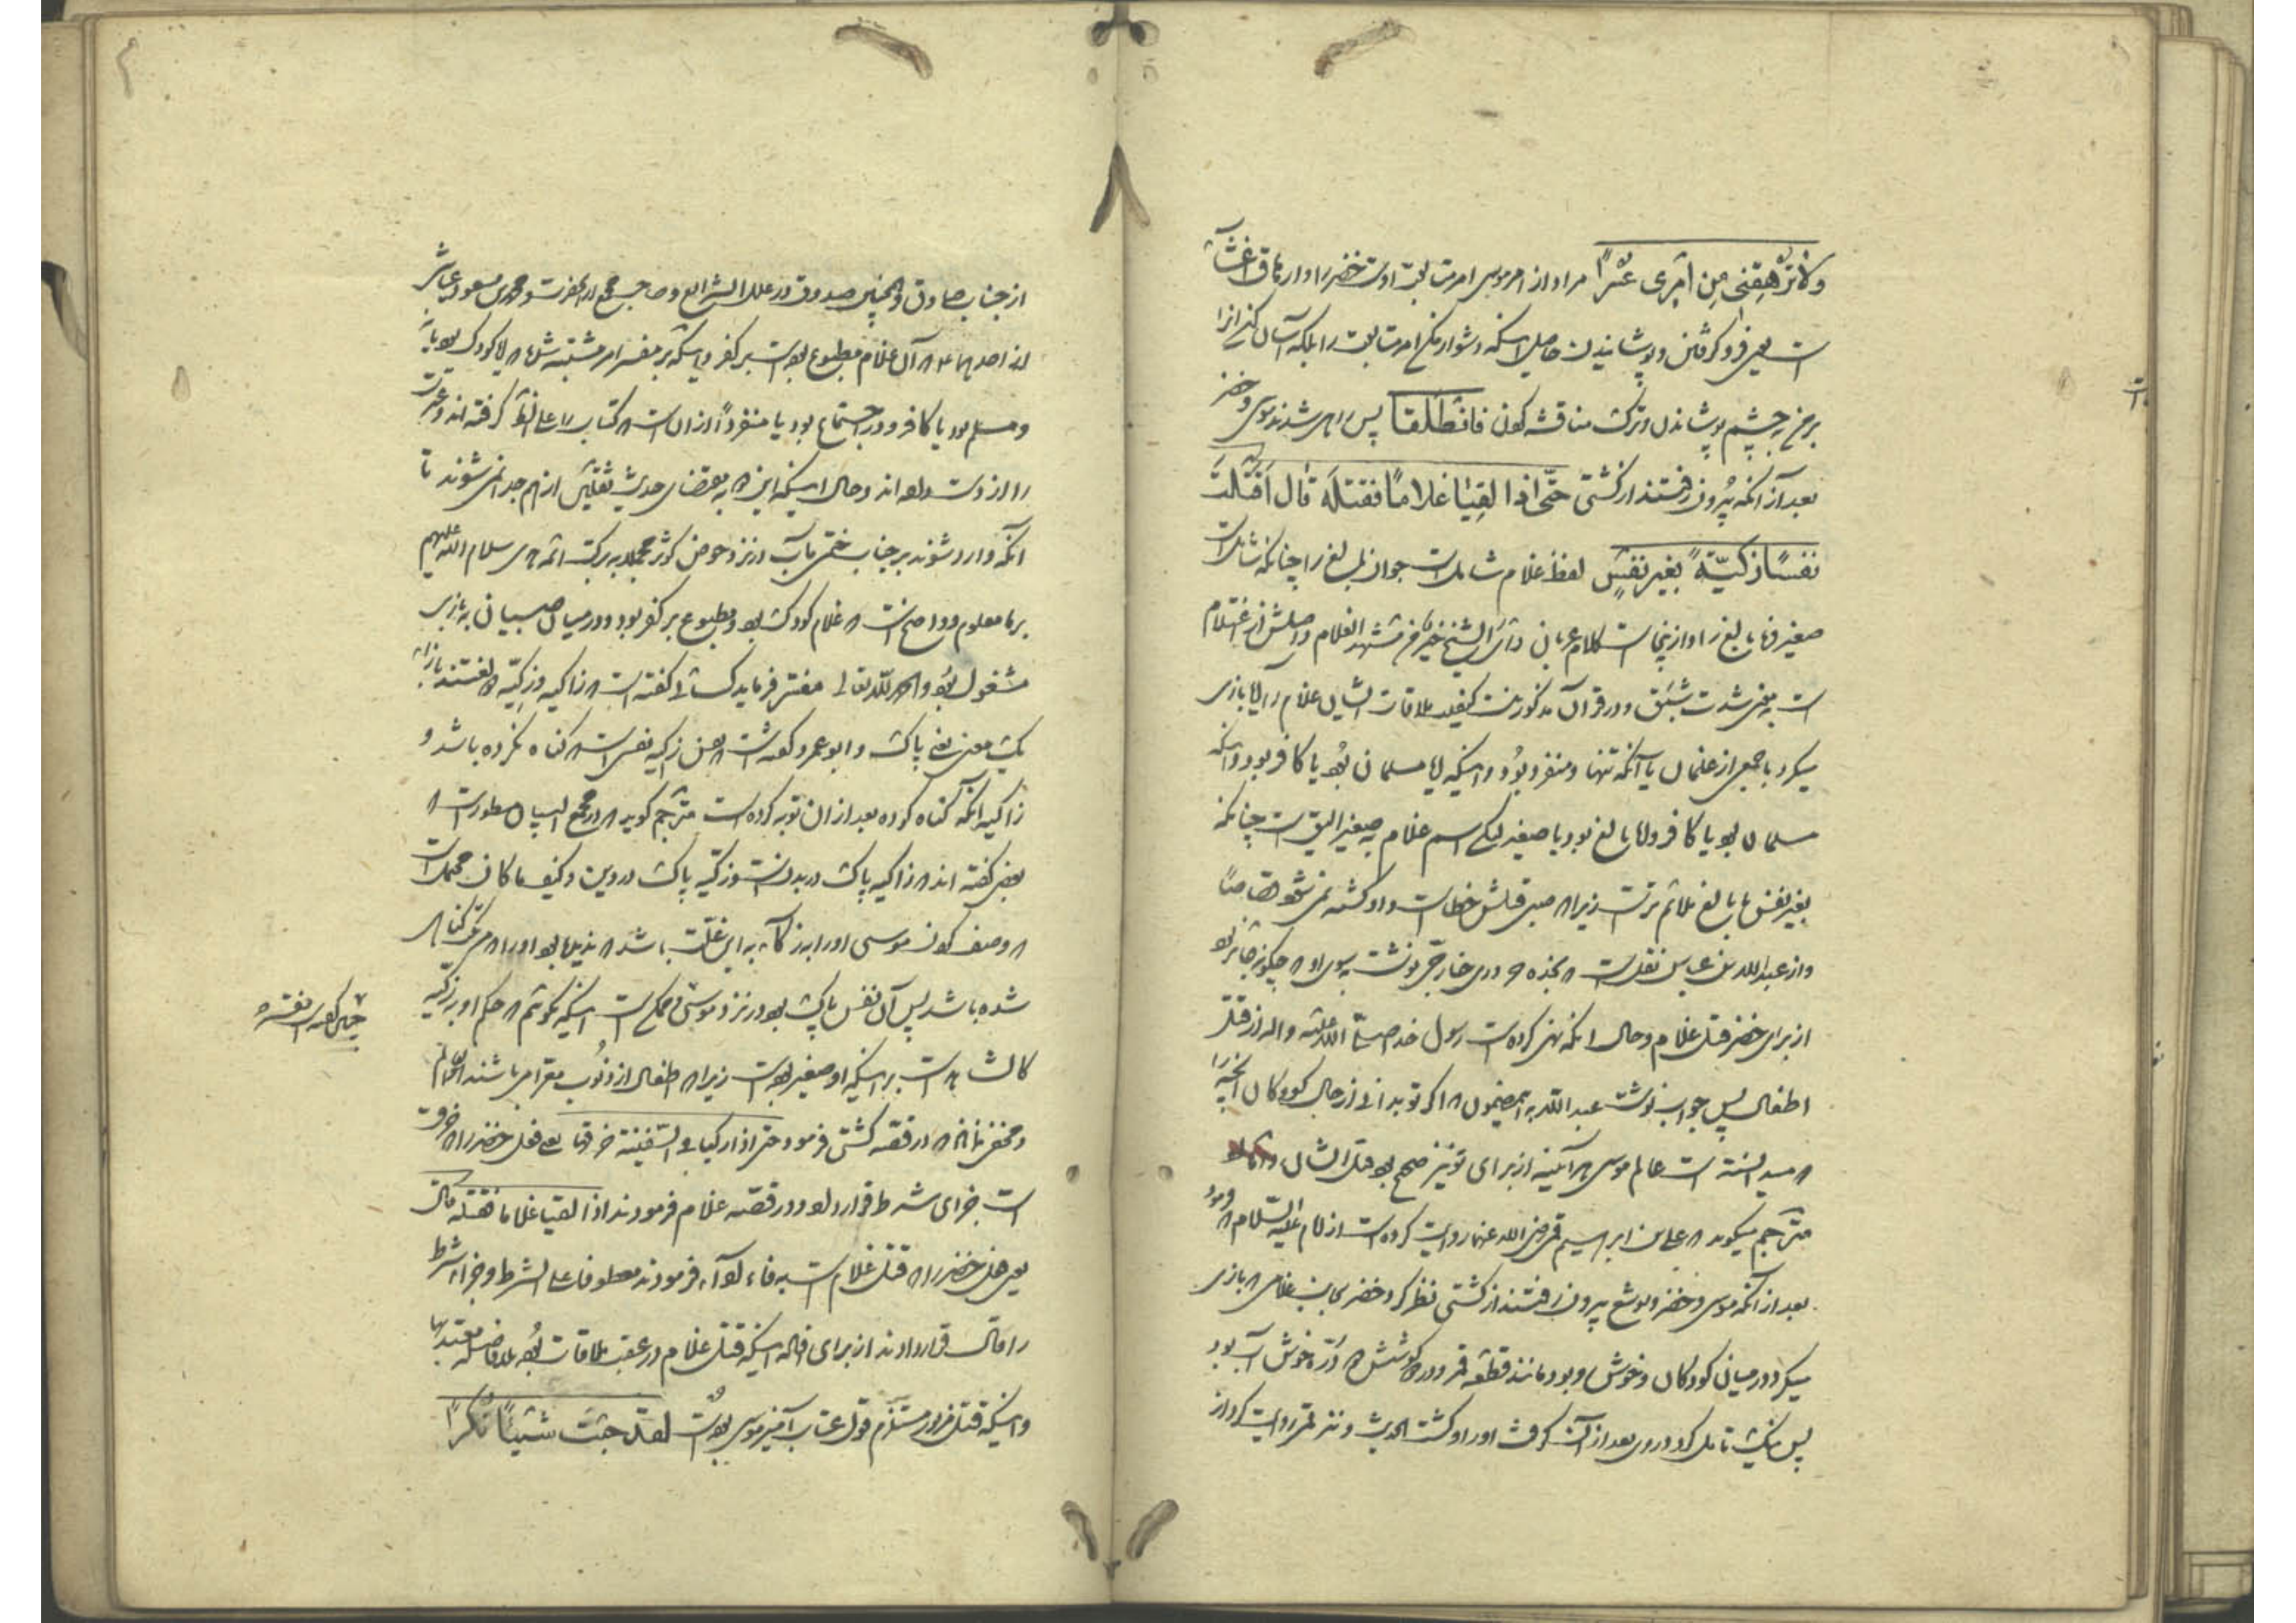 ولا ترهقنی من امری عسرا مراد از امر موسی امر متابعت اوست خضر را و ارهاق اغشاء
است یعنی فرو کرفتن و پوشانیدن حاصل اینکه دشوار مکن امر متابعت را بلکه آسان کن آنرا
بر من به چشم پوشاندن و ترک مناقشه کردن فانطلقا پس راهی شدند موسی و خضر
بعد از آنکه بیرون رفتند از کشتی حتی اذا لقیا غلاما فقتله قال اقتلت
نفسا زکیة بغیر نفس لفظ غلام شاملست جوان بالغ را چنانکه شاملست
صغیر نابالغ را و ازینجاست کلام عربان رأی الشیخ خیر من مشهد الغلام و اصلش از اغتلام
است به معنی شدت شبق و در قرآن مذکور نیست کیفیت ملاقات ایشان غلام را آیا بازی
میکرد با جمعی از غلمان یا آنکه تنها و منفرد بود و اینکه آیا مسلمان بود یا کافر بود و اینکه
مسلمان بود یا کافر و آیا بالغ بود یا صغیر لیکن اسم غلام به صغیر الیق است چنانکه
بغیر نفس با بالغ ملائم ترست زیرا که صبی قتلش خطاست و او کشته نمی شود قصاصا
و از عبدالله بن عباس نقلست که نجده حروری خارجی نوشت به سوی او که چکونه جائز بود
از برای خضر قتل غلام و حال آنکه نهی کرده است رسول خدا صلی الله علیه و اله از قتل
اطفال پس جواب نوشت عبدالله به این مضمون که اگر تو بدانی از حال کودکان آنچه را
که میدانسته است عالم موسی هر آینه از برای تو نیز صحیح بود قتل ایشان
مترجم میکوید که علی بن ابراهیم قمی رضی الله عنه روایت کرده است از امام علیه السلام که فرمود
بعد از آنکه موسی و خضر و یوشع بیرون رفتند از کشتی نظر کرد خضر بجانب غلامی که بازی
میکرد در میان کودکان و خوش رو بود مانند قطعه قمر و در کوشش دره خوش آب بود
پس نیک تامل کرد در وی بعد از آن کرفت او را و کشت الحدیث و نیز قمی روایت کرد از
از جناب صادق و همچنین صدوق در علل الشرایع و صاحب مجمع از آنحضرت و محمد بن مسعود عیاشی
از احدهما که آن غلام مطبوع بوده است بر کفر و اینکه بر مفسر امر مشتبه شده که آیا کودک بود یا
و مسلم بود یا کافر و در اجتماع بود یا منفردا از آنست که کتاب را علی کرفته اند و عترت
را از دست داده اند و حال اینکه این به مقتضای حدیث ثقلین از هم جدا نمی شوند تا
آنکه وارد شوند بر جناب ختمی مآب در نزد حوض کوثر مجملا به برکت ائمه هدی سلام الله علیهم
بر ما معلوم و واضحست که غلام کودک بود و مطبوع بر کفر بود و در میان صبیان به بازی
مشغول بود و الحمد لله تعالی مفسر فرماید کسائی کفته است که زاکیه و زکیه
یک معنی یعنی پاک و ابو عمرو کفته است که زکیه نفسی است که کناه نکرده باشد و
زاکیه آنکه کناه کرده بعد از آن توبه کرده است مترجم کوید که در مجمع البیان مسطورست که
بعضی کفته اند که زاکیه پاک در بدنست و زکیه پاک در دین و کیف ما کان محتملست
که وصف کردن موسی او را به زکاء به این علت باشد که ندیده بود او را که مرتکب کناهی
شده باشد پس آن نفس پاک بود در نزد موسی و ممکن است اینکه بکوئیم که حکم او بر زکیه
کالشاهد است بر اینکه او صغیر بوده است زیرا که اطفال از ذنوب معرا می باشند
و مخفی نماند که در قصه کشتی فرمود حتی اذا رکبا فی السفینة خرقها یعنی فعل خضر را که خرقست
است جزای شرط قرار داد و در قصه غلام فرمودند اذا لقیا غلاما فقتله قال
یعنی فعل خضر را که قتل غلام است به فاء فرمودند معطوفا علی الشرط و جزاء شرط
را قال قرار دادند از برای افاده اینکه قتل غلام در عقب ملاقات بوده بلافاصله معتد بها
و اینکه قتل مزبور مستلزم قول عتاب آمیز موسی بوده است لقد جئت شیئا نکرا